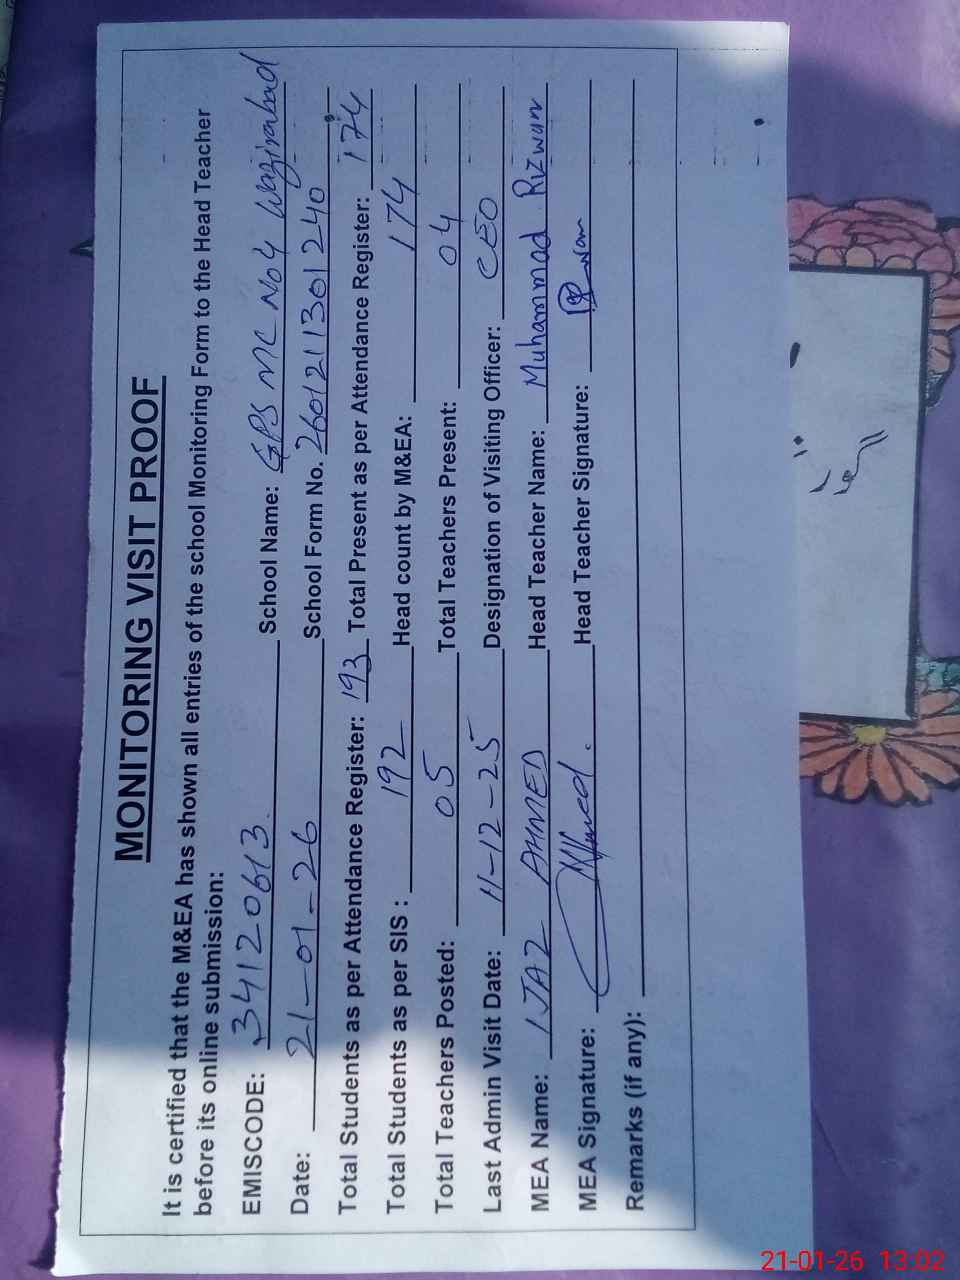 MONITORING VISIT PROOF
It is certified that the M&EA has shown all entries of the school Monitoring Form to the Head Teacher
before its online submission:
EMISCODE: 34120613. School Name: GPS MC No4 Wazirabad
Date: 21-01-26 School Form No. 2601211301240
Total Students as per Attendance Register: 193 Total Present as per Attendance Register: 174
Total Students as per SIS : 192 Head count by M&EA: 174
Total Teachers Posted: 05 Total Teachers Present: 04
Last Admin Visit Date: 11-12-25 Designation of Visiting Officer: CEO
MEA Name: IJAZ AHMED Head Teacher Name: Muhammad Rizwan
MEA Signature: Head Teacher Signature:
Remarks (if any):
21-01-26 13:02